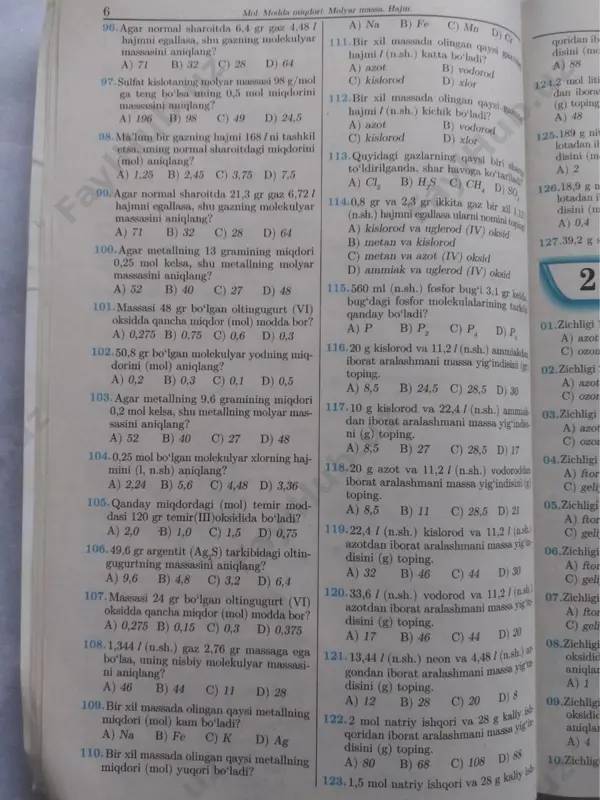 6
Mol. Modda miqdori. Molyar massa. Hajm
96. Agar normal sharoitda 6,4 gr gaz 4,48 l
hajmni egallasa, shu gazning molekulyar
massasini aniqlang?
A) 71 B) 32 C) 28 D) 64
97. Sulfat kislotaning molyar massasi 98 g/mol
ga teng bo'lsa uning 0,5 mol miqdorini
massasini aniqlang?
A) 196 B) 98 C) 49 D) 24,5
98. Ma'lum bir gazning hajmi 168 l ni tashkil
etsa, uning normal sharoitdagi miqdorini
(mol) aniqlang?
A) 1,25 B) 2,45 C) 3,75 D) 7,5
99. Agar normal sharoitda 21,3 gr gaz 6,72 l
hajmni egallasa, shu gazning molekulyar
massasini aniqlang?
A) 71 B) 32 C) 28 D) 64
100. Agar metallning 13 gramining miqdori
0,25 mol kelsa, shu metallning molyar
massasini aniqlang?
A) 52 B) 40 C) 27 D) 48
101. Massasi 48 gr bo'lgan oltingugurt (VI)
oksidda qancha miqdor (mol) modda bor?
A) 0,275 B) 0,75 C) 0,6 D) 0,3
102. 50,8 gr bo'lgan molekulyar yodning miq-
dorini (mol) aniqlang?
A) 0,2 B) 0,3 C) 0,1 D) 0,5
103. Agar metallning 9,6 gramining miqdori
0,2 mol kelsa, shu metallning molyar mas-
sasini aniqlang?
A) 52 B) 40 C) 27 D) 48
104. 0,25 mol bo'lgan molekulyar xlorning haj-
mini (l, n.sh) aniqlang?
A) 2,24 B) 5,6 C) 4,48 D) 3,36
105. Qanday miqdordagi (mol) temir mod-
dasi 120 gr temir(III)oksidida bo'ladi?
A) 2,0 B) 1,0 C) 1,5 D) 0,75
106. 49,6 gr argentit (Ag₂S) tarkibidagi oltin-
gugurtning massasini aniqlang?
A) 9,6 B) 4,8 C) 3,2 D) 6,4
107. Massasi 24 gr bo'lgan oltingugurt (VI)
oksidda qancha miqdor (mol) modda bor?
A) 0,275 B) 0,15 C) 0,3 D) 0,375
108. 1,344 l (n.sh.) gaz 2,76 gr massaga ega
bo'lsa, uning nisbiy molekulyar massasi-
ni aniqlang?
A) 46 B) 44 C) 11 D) 28
109. Bir xil massada olingan qaysi metallning
miqdori (mol) kam bo'ladi?
A) Na B) Fe C) K D) Ag
110. Bir xil massada olingan qaysi metallning
miqdori (mol) yuqori bo'ladi?
A) Na B) Fe C) Mn D) Cr
111. Bir xil massada olingan qaysi gazning
hajmi l (n.sh.) katta bo'ladi?
A) azot B) vodorod
C) kislorod D) xlor
112. Bir xil massada olingan qaysi gazning
hajmi l (n.sh.) kichik bo'ladi?
A) azot B) vodorod
C) kislorod D) xlor
113. Quyidagi gazlarning qaysi biri sharga
to'ldirilganda, shar havoga ko'tariladi?
A) Cl₂ B) H₂S C) CH₄ D) SO₂
114. 0,8 gr va 2,3 gr ikkita gaz bir xil 1,12 l
(n.sh.) hajmni egallasa ularni nomini toping
A) kislorod va uglerod (IV) oksid
B) metan va kislorod
C) metan va azot (IV) oksid
D) ammiak va uglerod (IV) oksid
115. 560 ml (n.sh.) fosfor bug'i 3,1 gr kelsa,
bug'dagi fosfor molekulalarining tarkibi
qanday bo'ladi?
A) P B) P₂ C) P₄ D) P₅
116. 20 g kislorod va 11,2 l (n.sh.) ammiakdan
iborat aralashmani massa yig'indisini (g)
toping.
A) 8,5 B) 24,5 C) 28,5 D) 30
117. 10 g kislorod va 22,4 l (n.sh.) ammiak-
dan iborat aralashmani massa yig'indisi-
ni (g) toping.
A) 8,5 B) 27 C) 28,5 D) 17
118. 20 g azot va 11,2 l (n.sh.) vodoroddan
iborat aralashmani massa yig'indisini (g)
toping.
A) 8,5 B) 11 C) 28,5 D) 21
119. 22,4 l (n.sh.) kislorod va 11,2 l (n.sh.)
azotdan iborat aralashmani massa yig'in-
disini (g) toping.
A) 32 B) 46 C) 44 D) 30
120. 33,6 l (n.sh.) vodorod va 11,2 l (n.sh.)
azotdan iborat aralashmani massa yig'in-
disini (g) toping.
A) 17 B) 46 C) 44 D) 20
121. 13,44 l (n.sh.) neon va 4,48 l (n.sh.) ar-
gondan iborat aralashmani massa yig'in-
disini (g) toping.
A) 12 B) 28 C) 20 D) 8
122. 2 mol natriy ishqori va 28 g kaliy ish-
qoridan iborat aralashmani massa yig'in-
disini (g) toping.
A) 80 B) 68 C) 108 D) 88
123. 1,5 mol natriy ishqori va 28 g kaliy ish-
qoridan ib
disini (mo
A) 88
124. 2 mol liti
dan ibora
(g) toping
A) 48
125. 189 g nit
lotadan i
disini (m
A) 2
126. 18,9 g n
lotadan i
disini (m
A) 0,4
127. 39,2 g s
2
01. Zichligi
A) azot
C) ozon
02. Zichligi
A) azot
C) ozon
03. Zichligi
A) azot
C) ozon
04. Zichligi
A) ftor
C) geli
05. Zichligi
A) ftor
C) geli
06. Zichligi
A) ftor
C) geli
07. Zichligi
A) ftor
C) geli
08. Zichligi
oksidid
aniqlan
A) 1
09. Zichligi
oksidid
aniqlan
A) 4
10. Zichligi